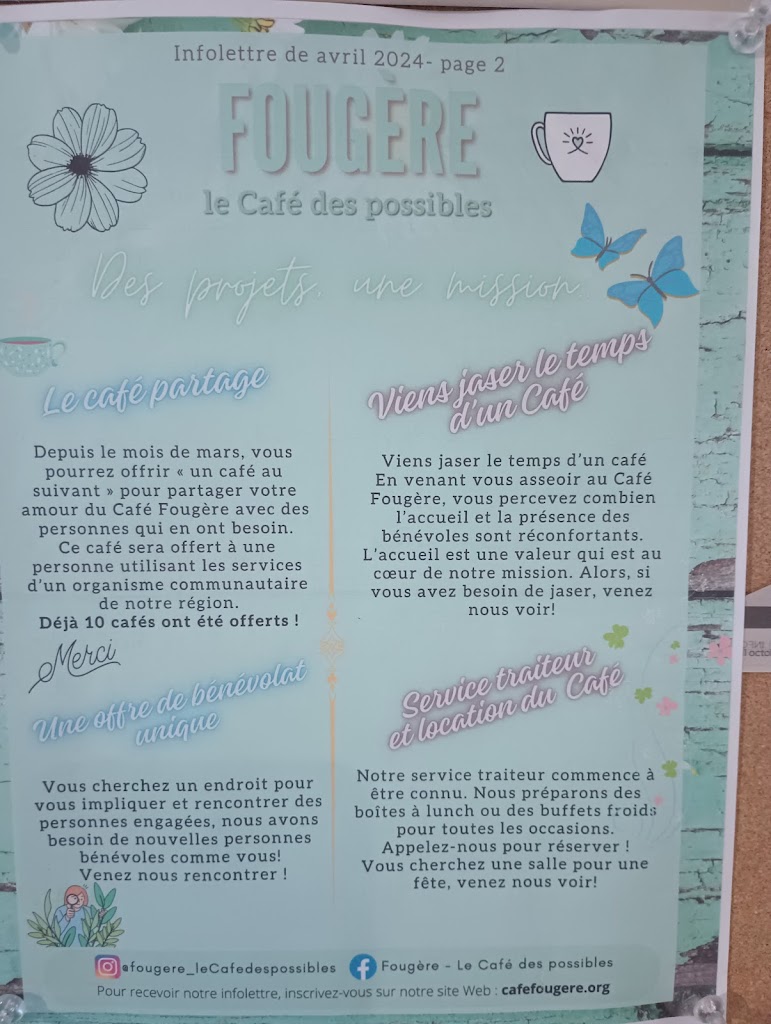 Infolettre de avril 2024- page 2
FOUGÈRE
le Café des possibles
Des projets, une mission
Le café partage
Depuis le mois de mars, vous
pourrez offrir « un café au
suivant » pour partager votre
amour du Café Fougère avec des
personnes qui en ont besoin.
Ce café sera offert à une
personne utilisant les services
d'un organisme communautaire
de notre région.
Déjà 10 cafés ont été offerts !
Merci
Viens jaser le temps
d'un Café
Viens jaser le temps d'un café
En venant vous asseoir au Café
Fougère, vous percevez combien
l'accueil et la présence des
bénévoles sont réconfortants.
L'accueil est une valeur qui est au
cœur de notre mission. Alors, si
vous avez besoin de jaser, venez
nous voir!
Une offre de bénévolat
unique
Vous cherchez un endroit pour
vous impliquer et rencontrer des
personnes engagées, nous avons
besoin de nouvelles personnes
bénévoles comme vous!
Venez nous rencontrer !
Service traiteur
et location du Café
Notre service traiteur commence à
être connu. Nous préparons des
boîtes à lunch ou des buffets froids
pour toutes les occasions.
Appelez-nous pour réserver !
Vous cherchez une salle pour une
fête, venez nous voir!
@fougere_leCafedespossibles
Fougère - Le Café des possibles
Pour recevoir notre infolettre, inscrivez-vous sur notre site Web : cafefougere.org